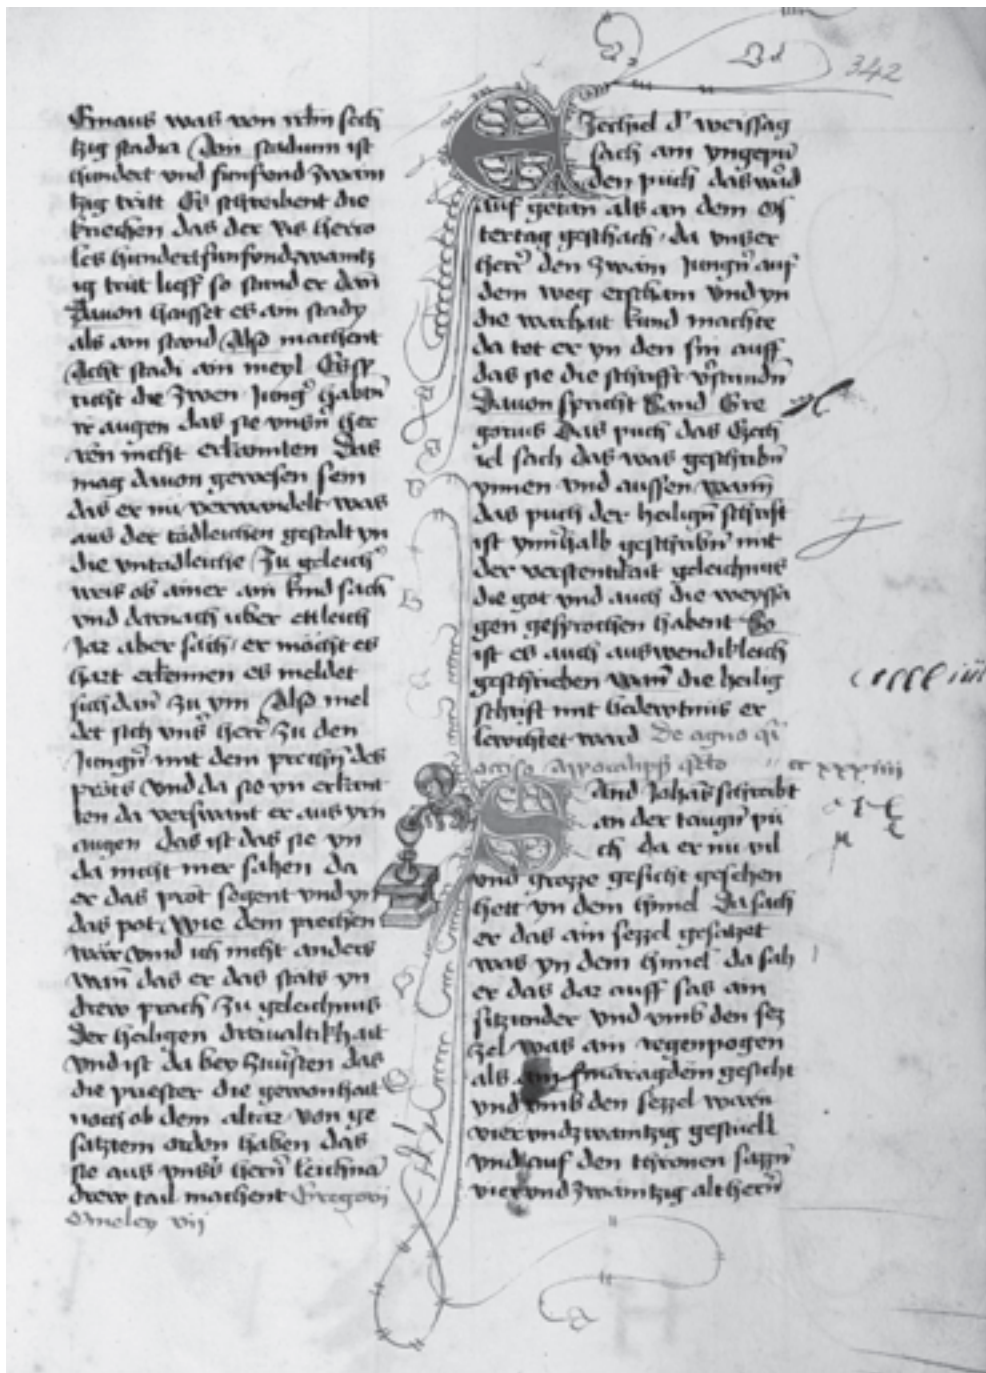 Emaus was von irlm sech
tzig stadia Ain stadium ist
hundert vnd funfvnd zwain
tzig tritt Es schreibent die
kriechen das der Ris herco
les hundertfunfvndzwaintz
ig tritt lieff so stund er dan
Dauon haisset es ain stady
als ain stand Also machent
Acht stadi ain meyl
die zwen Jung habtn
ir augen das sie vnsn her
ren nicht erkannten Das
mag dauon gewesen sein
das er nu verwandelt was
aus der tödleichen gestalt yn
die vntödleiche Zu geleich
weis ob ainer ain kind sach
vnd darnach uber ettleich
Jar aber sach er möcht es
hart erkennen es meldet
sich dan zu ym Also mel
det sich vns herr zu den
Jungn mit dem prechn des
prots Vnd da sie yn erkant
ten da verswant er aus yrn
augen das ist das sie yn
da nicht mer sahen da
er das prot segent vnd yn
das pot Wie dem prechen
wär vind ich nicht anders
wan das er das stats yn
drew prach zu geleichnus
der heiligen driualtikhait
vnd ist da bey
die priester die gewonhait
noch ob dem altar von ge
satztem orden haben das
sie aus vnss hern leichna
drew tail machent Gregorij
Omeley vij
342
Ezechiel d' weissag
sach ain vngepu
den puch das wad
auf getan als an dem Os
tertag geschach da vnser
herr den zwain Jungn auf
dem weg erscham vnd yn
die warhait kund machte
da tet er yn den sin auff
das sie die schrifft vstundn
Dauon spricht Sand Gre
gorius Das puch das Ezech
iel sach das was geschribn
ynnen vnd aussen wann
das puch der heilign schrift
ist ynnhalb geschribn mit
der verstentikait geleichnus
die got vnd auch die weyssa
gen gesprochen habent So
ist es auch auswendikleich
geschrieben wann die heilig
schrift mit bedewtnus er
lewchtet ward De agno qi
occiso Apocalipsis qnto cr xxxiiij
Sand Johas schreibt
an der taugn pu
ch da er nu vil
vnd grozze gesicht gesehen
hett yn dem himel Da sach
er das ain sezzel gesatzet
was yn dem himel da sah
er das dar auff sas ain
sitzunder vnd vmb den sez
zel was ain regenpogen
als ain smaragdem gesicht
vnd vmb den sezzel warn
vierundzwaintzig gestuell
vnd auf den thronen sazzn
vier vnd zwaintzig althern